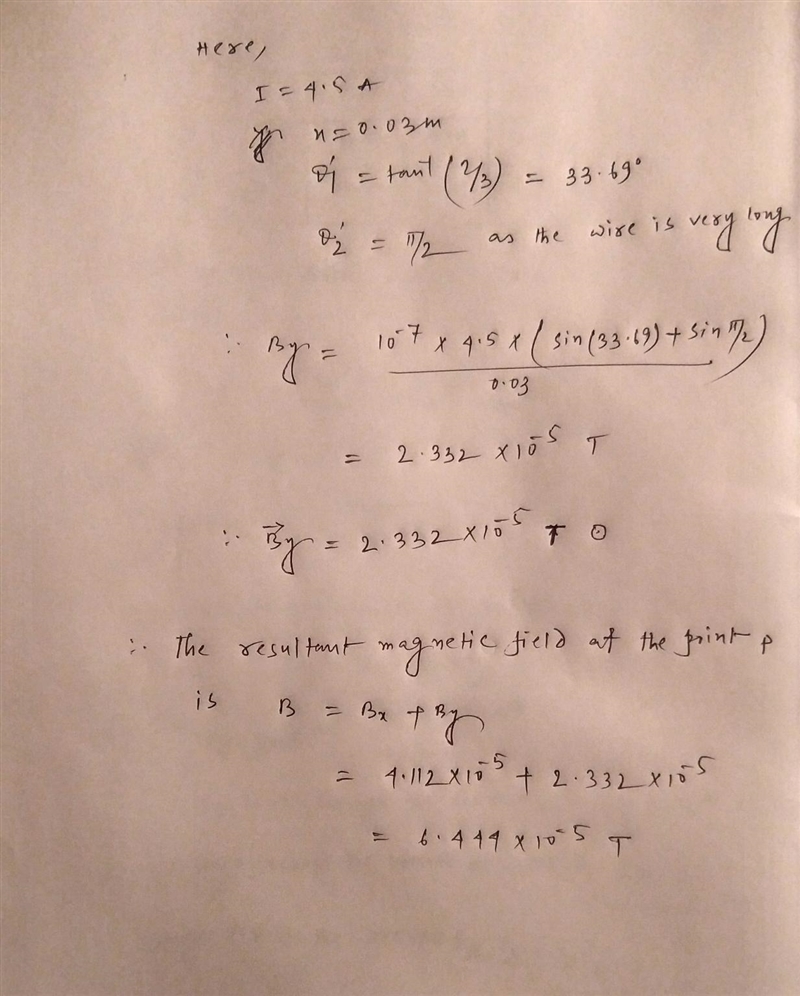 Here,
I = 4.5 A
x = 0.03m
θ₁' = tan⁻¹ (2/3) = 33.69°
θ₂' = π/2 as the wire is very long
∴ By = 10⁻⁷ x 4.5 x ( sin(33.69) + sin π/2 )
0.03
= 2.332 x 10⁻⁵ T
∴ B⃗y = 2.332 x 10⁻⁵ T ⊙
∴ The resultant magnetic field at the point p
is B = Bx + By
= 4.112 x 10⁻⁵ + 2.332 x 10⁻⁵
= 6.444 x 10⁻⁵ T